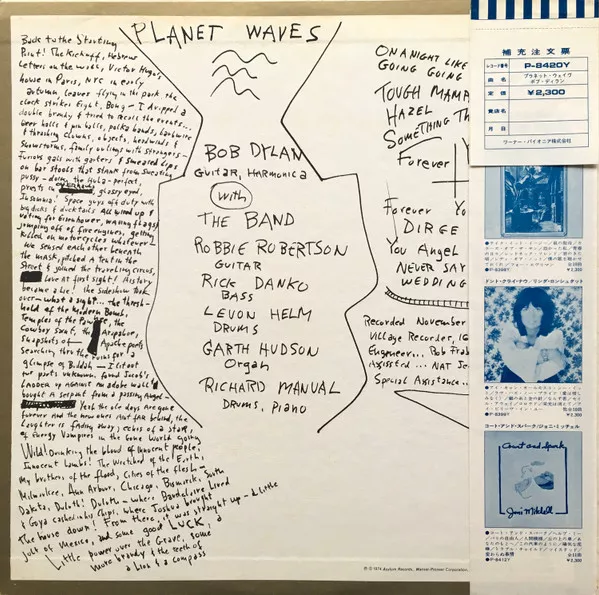 PLANET WAVES
Back to the Starting
Point! The Kickoff, Hebrew
Letters on the wall, Victor Hugo's
house in Paris, NYC in early
autumn, leaves flying in the park, the
clock strikes Eight, Bong — I dropped a
double brandy & tried to recall the events...
beer halls & pin balls, polka bands, barbwire
& thrashing clowns, objects, headwinds &
snowstorms, family outings with strangers—
Furious gals with garters & smeared lips
on bar stools that stank from sweating
pussy— doing the Hula— perfect,
priests in glassy eyed,
Insomnia! Space guys off duty with
big dicks & ducktails All wired up &
voting for Eisenhower, waving flags &
jumping off of fire engines, getting
killed on motorcycles whatever—
We sensed each other beneath
the mask, pitched a tent in the
Street & joined the traveling circus,
Love at first sight! History
became a lie! the sideshow took
over— what a sight... the thresh-
hold of the Modern Bomb,
Temples of the the
Cowboy Saint, the Arapahoe,
snapshots of Apache poets
searching thru the ruins for a
glimpse of Buddah — I lit out
for parts unknown, found Jacob's
Ladder up against an adobe wall &
bought a serpent from a passing Angel—
Yeah the ole days are gone
forever And the new ones Aint far behind, the
Laughter is fading away, echos of a star,
of Energy Vampires in the Gone World going
Wild! Drinking the blood of innocent people,
Innocent Lambs! The Wretched of the Earth,
My brothers of the flood, Cities of the flesh—
Milwaukee, Ann Arbor, Chicago, Bismarck, South
Dakota, Duluth! Duluth— where Baudelaire Lived
& Goya cashed in his Chips, where Joshua brought
The house down! From there, it was straight up— a little
jolt of Mexico, and some good LUCK, a
Little power over the Grave, some
more brandy & the teeth of
a Lion & a compass
BOB DYLAN
GUITAR, HARMONICA
with
THE BAND
ROBBIE ROBERTSON
GUITAR
RICK DANKO
BASS
LEVON HELM
DRUMS
GARTH HUDSON
Organ
RICHARD MANUAL
DRUMS, PIANO
ON A NIGHT LIKE
GOING GOING
TOUGH MAMA
HAZEL
SOMETHING TH
Forever
Forever Yo
DIRGE
You Angel
NEVER SAY
WEDDING
Recorded November
Village Recorder,
Engineer... Rob Frab
Assisted... NAT Je
Special Assistance..
℗ © 1974 Asylum Records, Warner-Pioneer Corporation,
補充注文票
レコード番号 P-8420Y
曲名 プラネット・ウェイヴ
ボブ・ディラン
定価 ¥2,300
貴店名
月日
ワーナー・パイオニア株式会社
ドント・クライ・ナウ/リンダ・ロンシュタット
コート・アンド・スパーク/ジョニ・ミッチェル
Court and Spark
Joni Mitchell